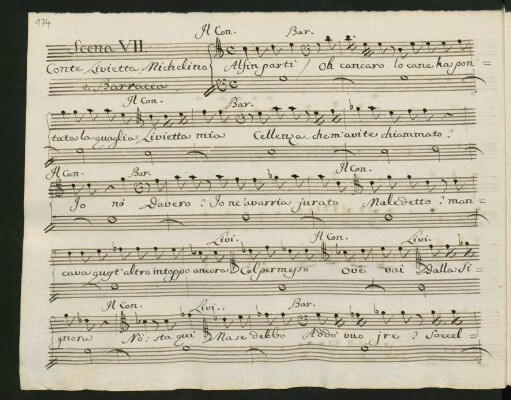 174
Il Con. Bar.
Scena VII.
Conte Livietta, Michelino Alfin parti Oh cancaro lo cane ha pon=
e Barracca
Il Con. Bar.
tata la quaglia Livietta mia Cellenza che m'avite chiammato?
Il Con. Bar. Il Con.
Io nò Davero? Io nc'avarria jurato Maledetto! man=
Livi. Il Con. Livi.
cava quest'altro intoppo ancora Col permesso Ove vai Dalla Si=
Il Con. Livi. Bar.
gnora Nò: sta qui Ma se debbo Addò vuo jre? Soccel=